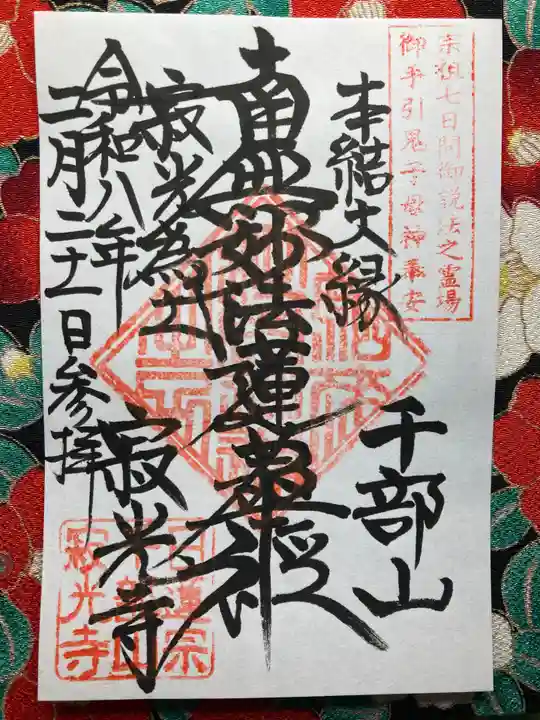 宗祖七日間御説法之霊場
御手引鬼子母神奉安
本結大縁
千部山
南無妙法蓮華経
寂光為土
寂光寺
令和八年
二月二十一日参拝
日蓮宗
千部山
寂光寺